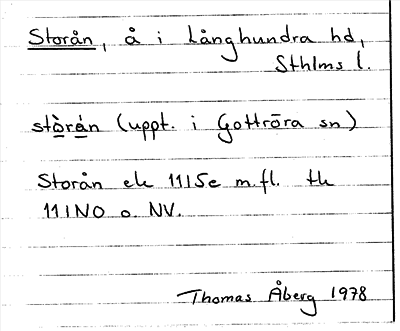 Storån, å i Långhundra hd,
Sthlms l.
stòrån (uppt. i Gottröra sn)
Storån ek 11I5e m.fl. tk
11INO o. NV.
Thomas Åberg 1978